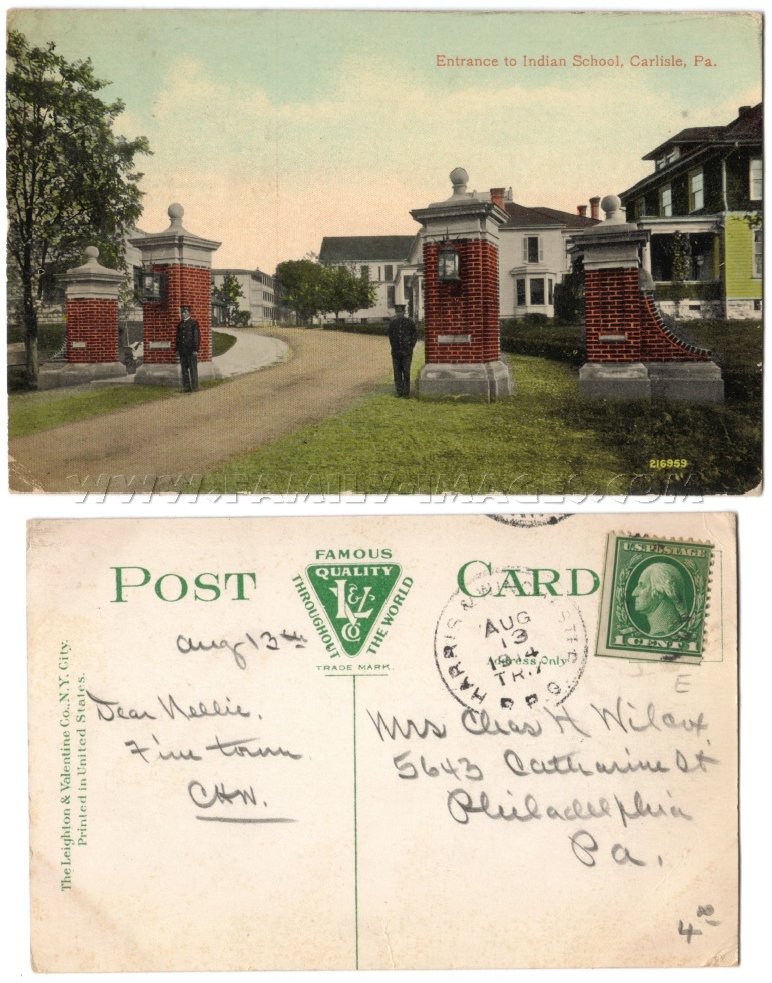 Entrance to Indian School, Carlisle, Pa.
216959
WWW.FAMILY-IMAGES.COM
POST CARD
FAMOUS
QUALITY
THROUGHOUT
L&V
CO
THE WORLD
TRADE MARK.
Address Only
U.S. POSTAGE
1 CENT 1
AUG
13
1914
TR.7
R.P.O.
The Leighton & Valentine Co., N.Y. City.
Printed in United States.
Aug 13th
Dear Nellie,
Fine town.
CHW.
Mrs Chas H Wilcox,
5643 Catharine St
Philadelphia
Pa.
400